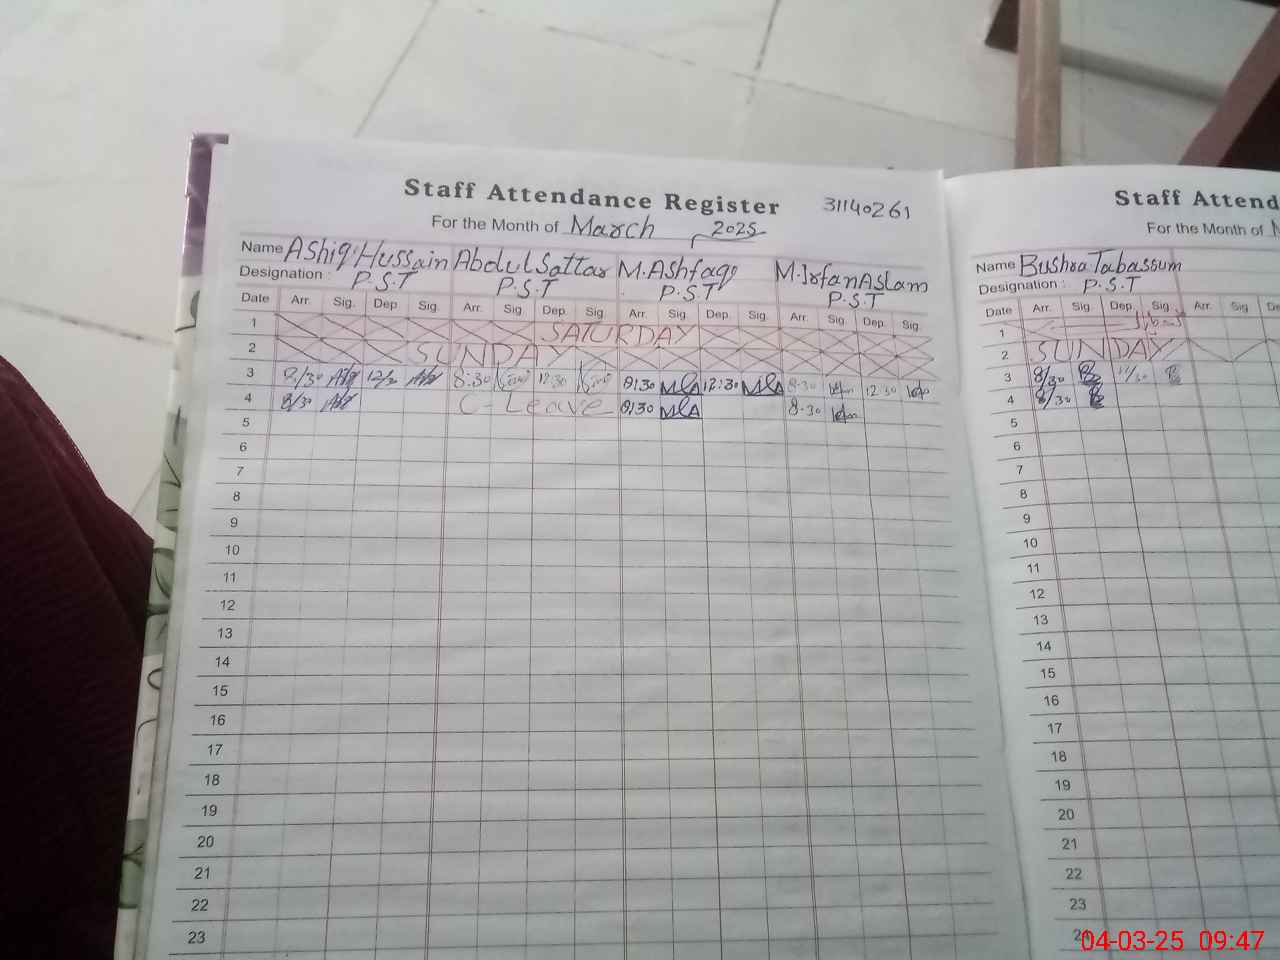 Staff Attendance Register 31140261
For the Month of March 2025
Name Ashiq Hussain Abdul Sattar M.Ashfaq M.Irfan Aslam
Designation : P.S.T P.S.T P.S.T P.S.T
Date Arr. Sig. Dep. Sig. Arr. Sig. Dep. Sig. Arr. Sig. Dep. Sig. Arr. Sig. Dep. Sig.
1 SATURDAY
2 SUNDAY
3 8/30 12/30 8:30 12:30 8:30 12:30 8-30 12 30
4 8/30 C-Leave 8/30 8-30
5
6
7
8
9
10
11
12
13
14
15
16
17
18
19
20
21
22
23
Staff Attend
For the Month of
Name Bushra Tabassum
Designation : P.S.T
Date Arr. Sig. Dep. Sig. Arr. Sig. D
1
2 SUNDAY
3 8/30
4 8/30
5
6
7
8
9
10
11
12
13
14
15
16
17
18
19
20
21
22
23
24
04-03-25 09:47